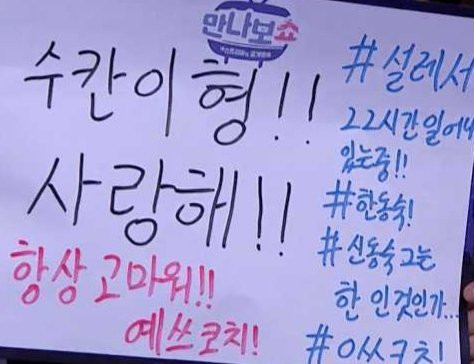 만나보쇼
수칸이형!!
사랑해!!
항상 고마워!!
예쓰코치!
#설레서
22시간일어나
있는중!!
#한동숙!
#신동숙그는
한 인것인가...